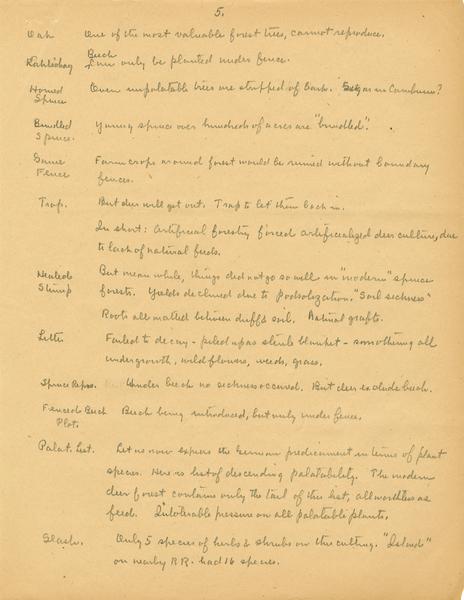 5.
Oak One of the most valuable forest trees, cannot reproduce.
Beech
can only be planted under fence.
Horned Even unpalatable trees are stripped of bark. Sugar in Cambium?
Spruce
Bundled Young spruce over hundreds of acres are "bundled".
Spruce.
Game Farm crops around forest would be ruined without boundary
Fence fences.
Trap. But deer will get out. Trap to let them back in.
In short: Artificial forestry forced artificialized deer culture, due
to lack of natural feeds.
But mean while, things did not go so well in "modern" spruce
Stump forests. Yields declined due to podsolization. "Soil sickness"
Roots all matted between duff & soil. Natural grafts.
Litter Failed to decay - piled up as sterile blanket - smothering all
undergrowth, wildflowers, weeds, grass.
Spruce Repro. Under beech no sickness occurred. But deer exclude beech.
Fenced Beech Beech being introduced, but only under fence.
Plot.
Palat. List. Let us now express the German predicament in terms of plant
species. Here is list of descending palatability. The modern
deer forest contains only the tail of this list, all worthless as
feed. Intolerable pressure on all palatable plants.
Slash. Only 5 species of herbs & shrubs on this cutting. "Island"
on nearby RR. had 16 species.